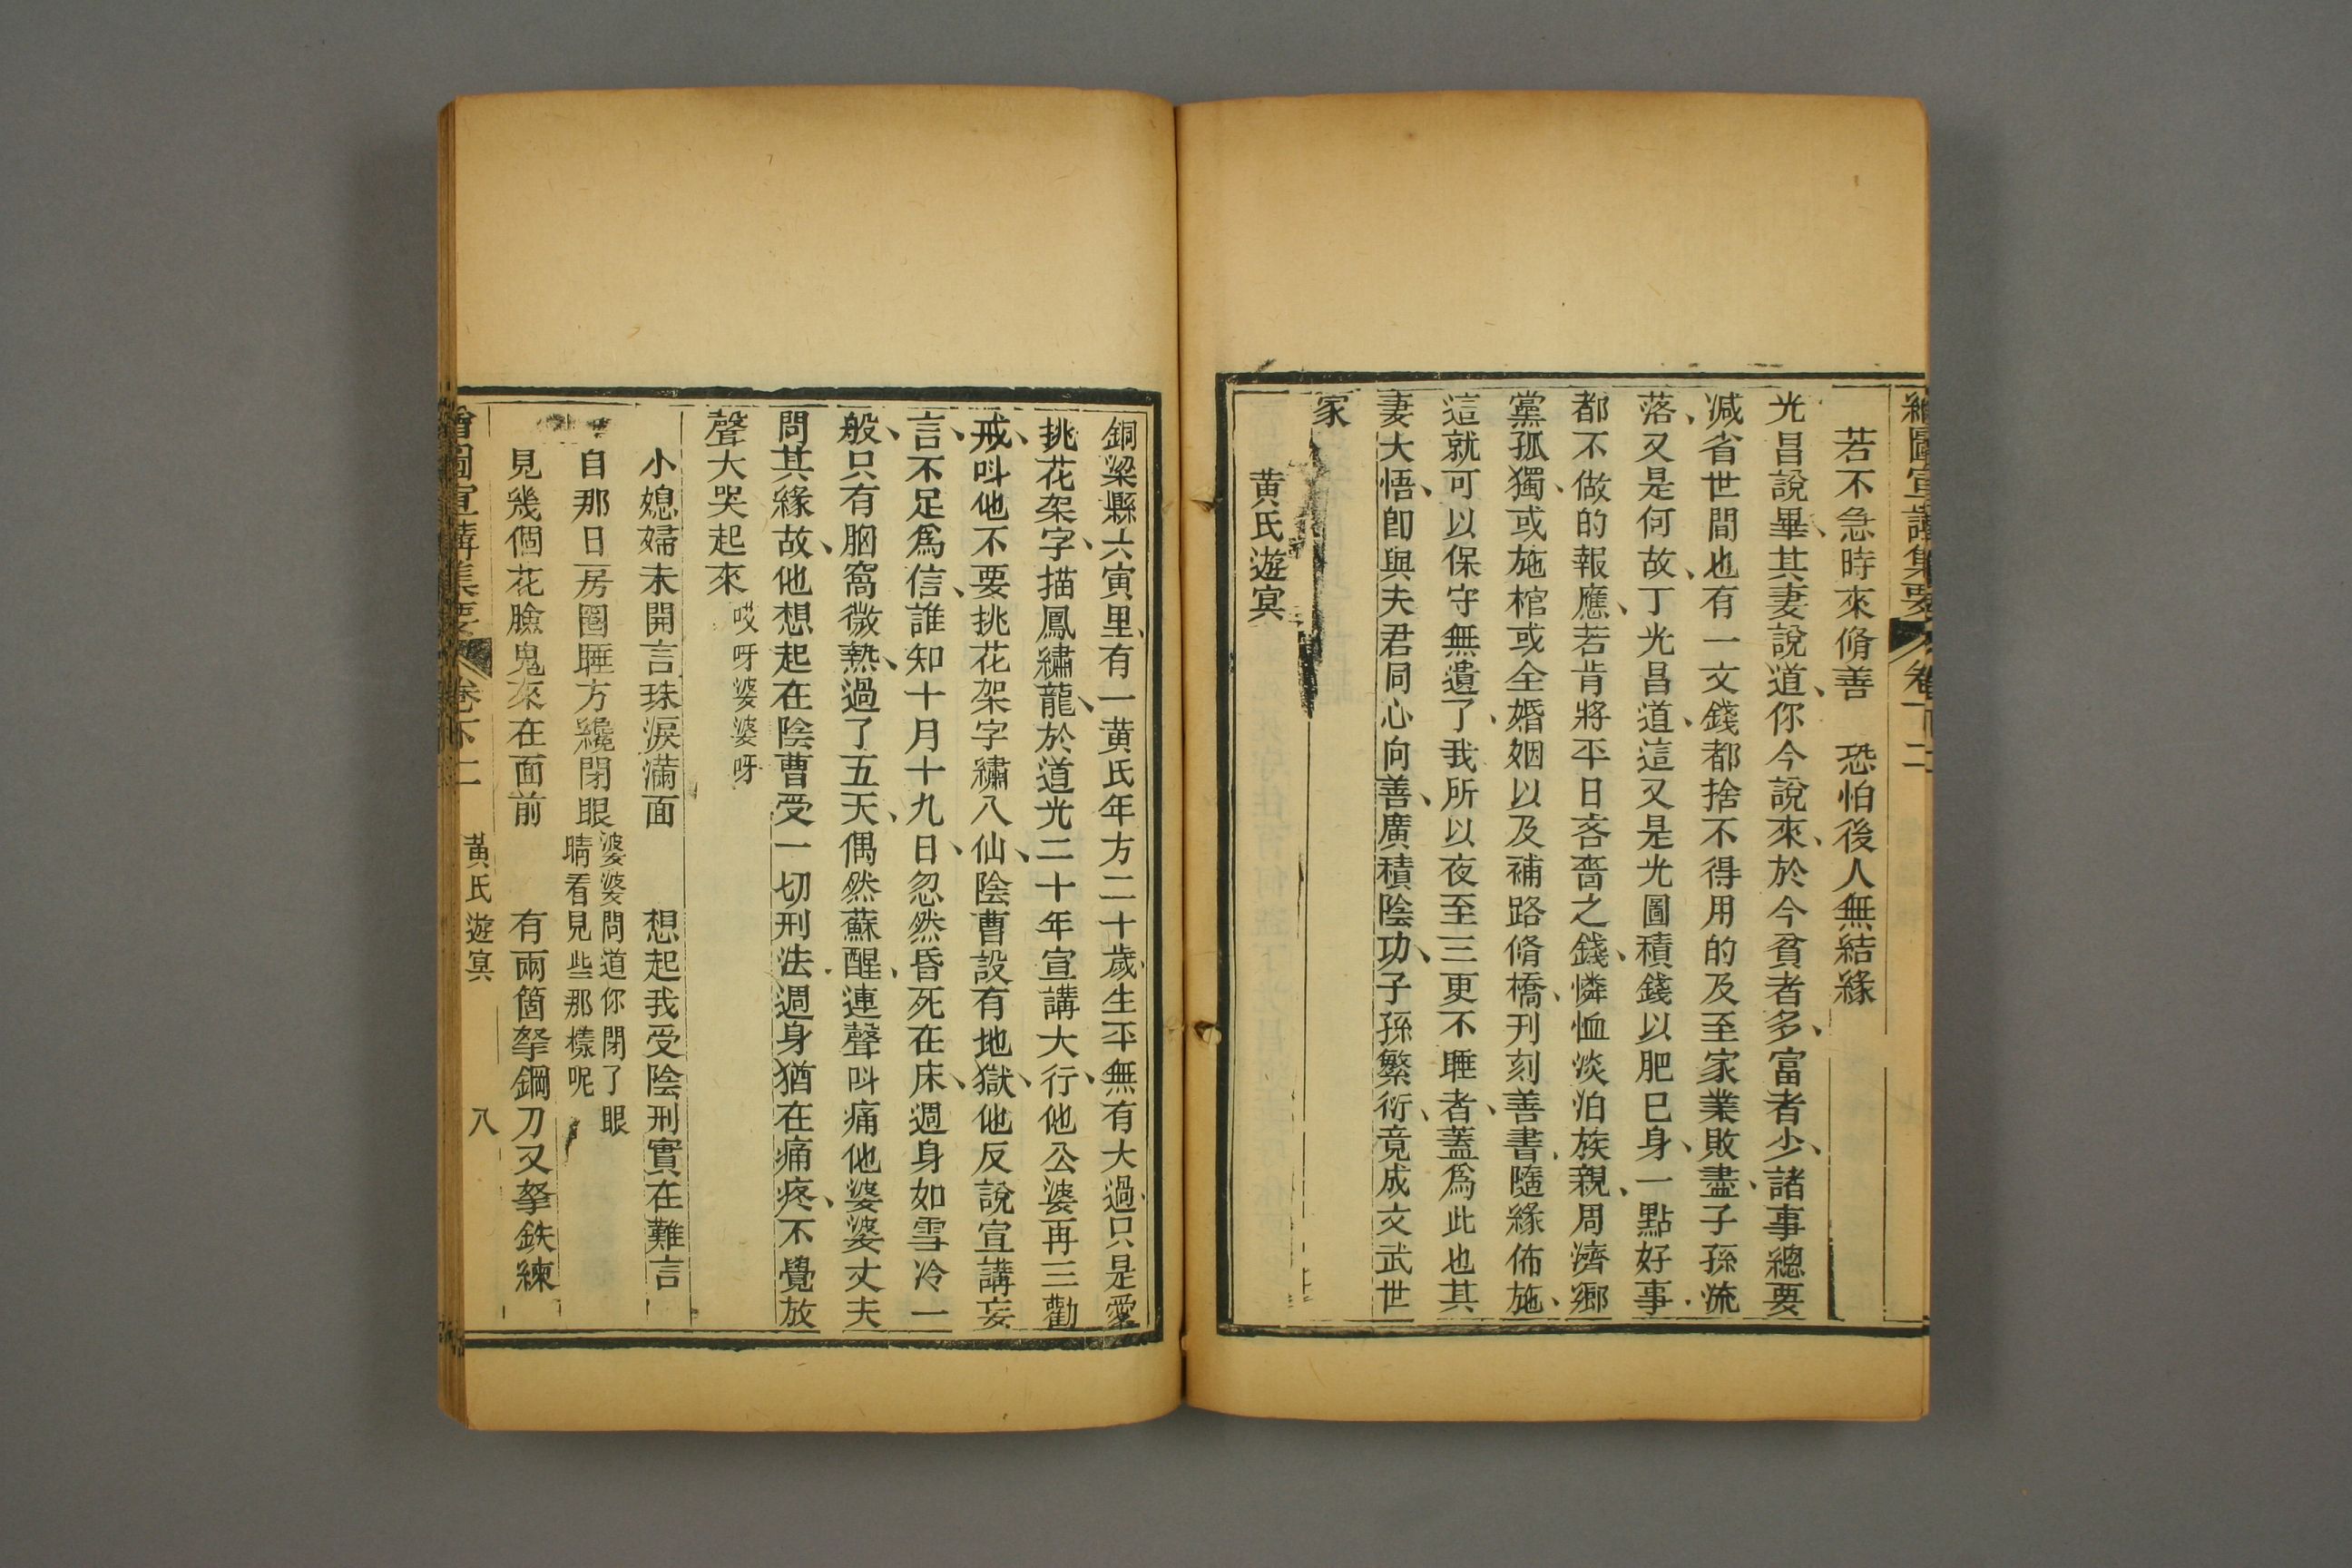 若不急時來脩善　恐怕後人無結緣
光昌說畢、其妻說道、你今說來、於今貧者多、富者少、諸事總要
減省世間也有一文錢都捨不得用的及至家業敗盡、子孫流
落、又是何故、丁光昌道、這又是光圖積錢以肥已身、一點好事
都不做的報應、若肯將平日吝嗇之錢、憐恤淡泊族親、周濟鄉
黨孤獨、或施棺或全婚姻以及補路脩橋、刊刻善書、隨緣佈施、
這就可以保守無遺了、我所以夜至三更不睡者、蓋為此也其
妻大悟、卽與夫君同心向善、廣積陰功、子孫繁衍、竟成文武世
家
黄氏遊冥
銅梁縣六寅里、有一黄氏年方二十歲、生平無有大過、只是愛
挑花架字、描鳳繡龍、於道光二十年宣講大行、他公婆再三勸
戒、呌他不要挑花架字繡八仙、陰曹設有地獄、他反說宣講妄
言、不足為信、誰知十月十九日、忽然昏死在床、週身如雪冷一
般、只有胸窩微熱、過了五天、偶然蘇醒、連聲呌痛他婆婆丈夫
問其緣故、他想起在陰曹受一切刑法、週身猶在痛疼、不覺放
聲大哭起來　哎呀婆婆呀
小媳婦未開言珠淚滿面　想起我受陰刑實在難言
自那日房圈睡方纔閉眼　婆婆問道你閉了眼
睛看見些那樣呢
見幾個花臉鬼來在面前　有兩箇拏鋼刀又拏鉄練
卷下二　黃氏遊冥　八